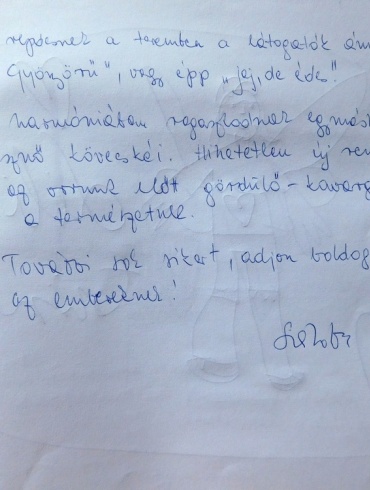 repdesnek a teremben a látogatók ám
Gyönyörű", vagy épp „jaj, de édes!"
harmóniában ragaszkodnak egymás
színű kövecskéi. Hihetetlen új ren
az orrunk előt gördülő - kavarg
a természetnek.
További sok sikert, adjon boldog
az embereknek!